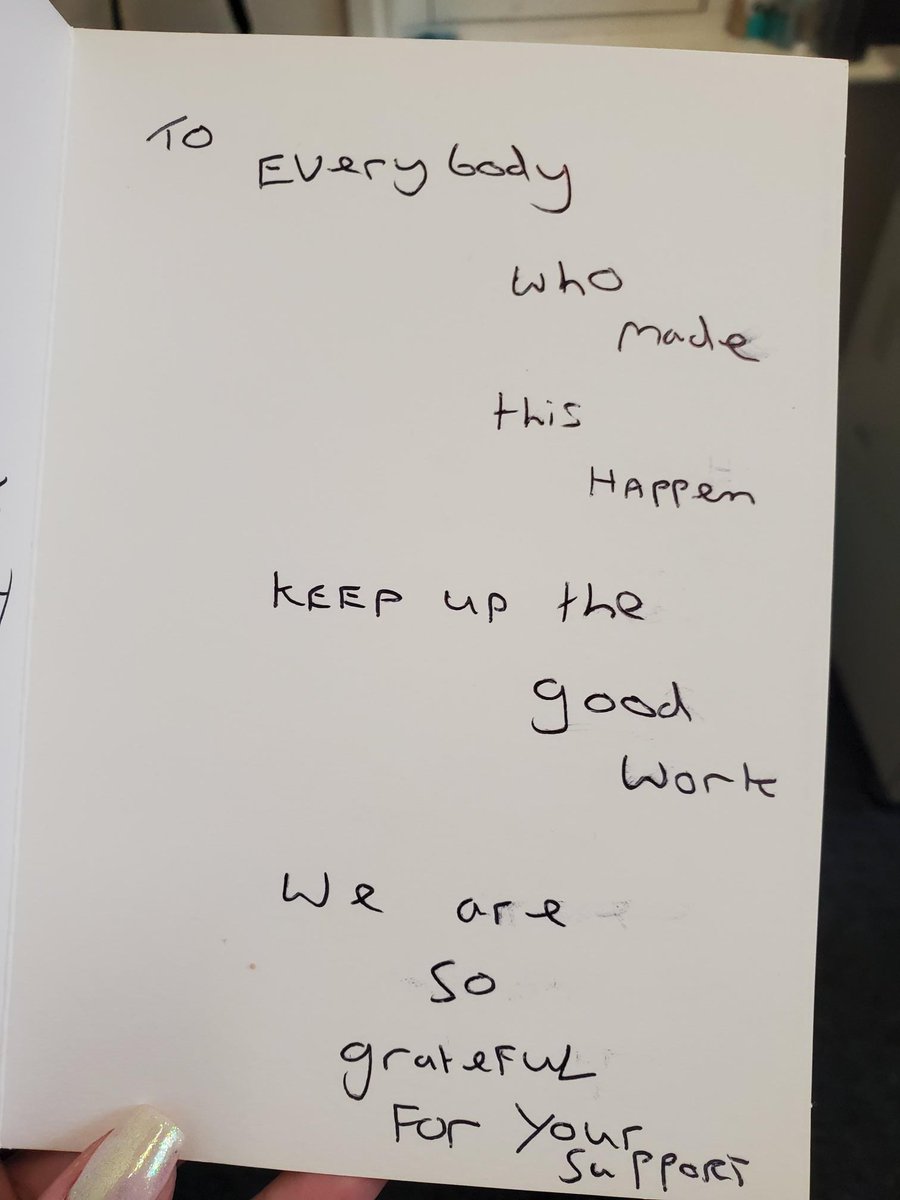 TO
EVery body
who
made
this
HAppen
KEEP up the
good
Work
We are
So
grateFuL
For Your
SuppoRT